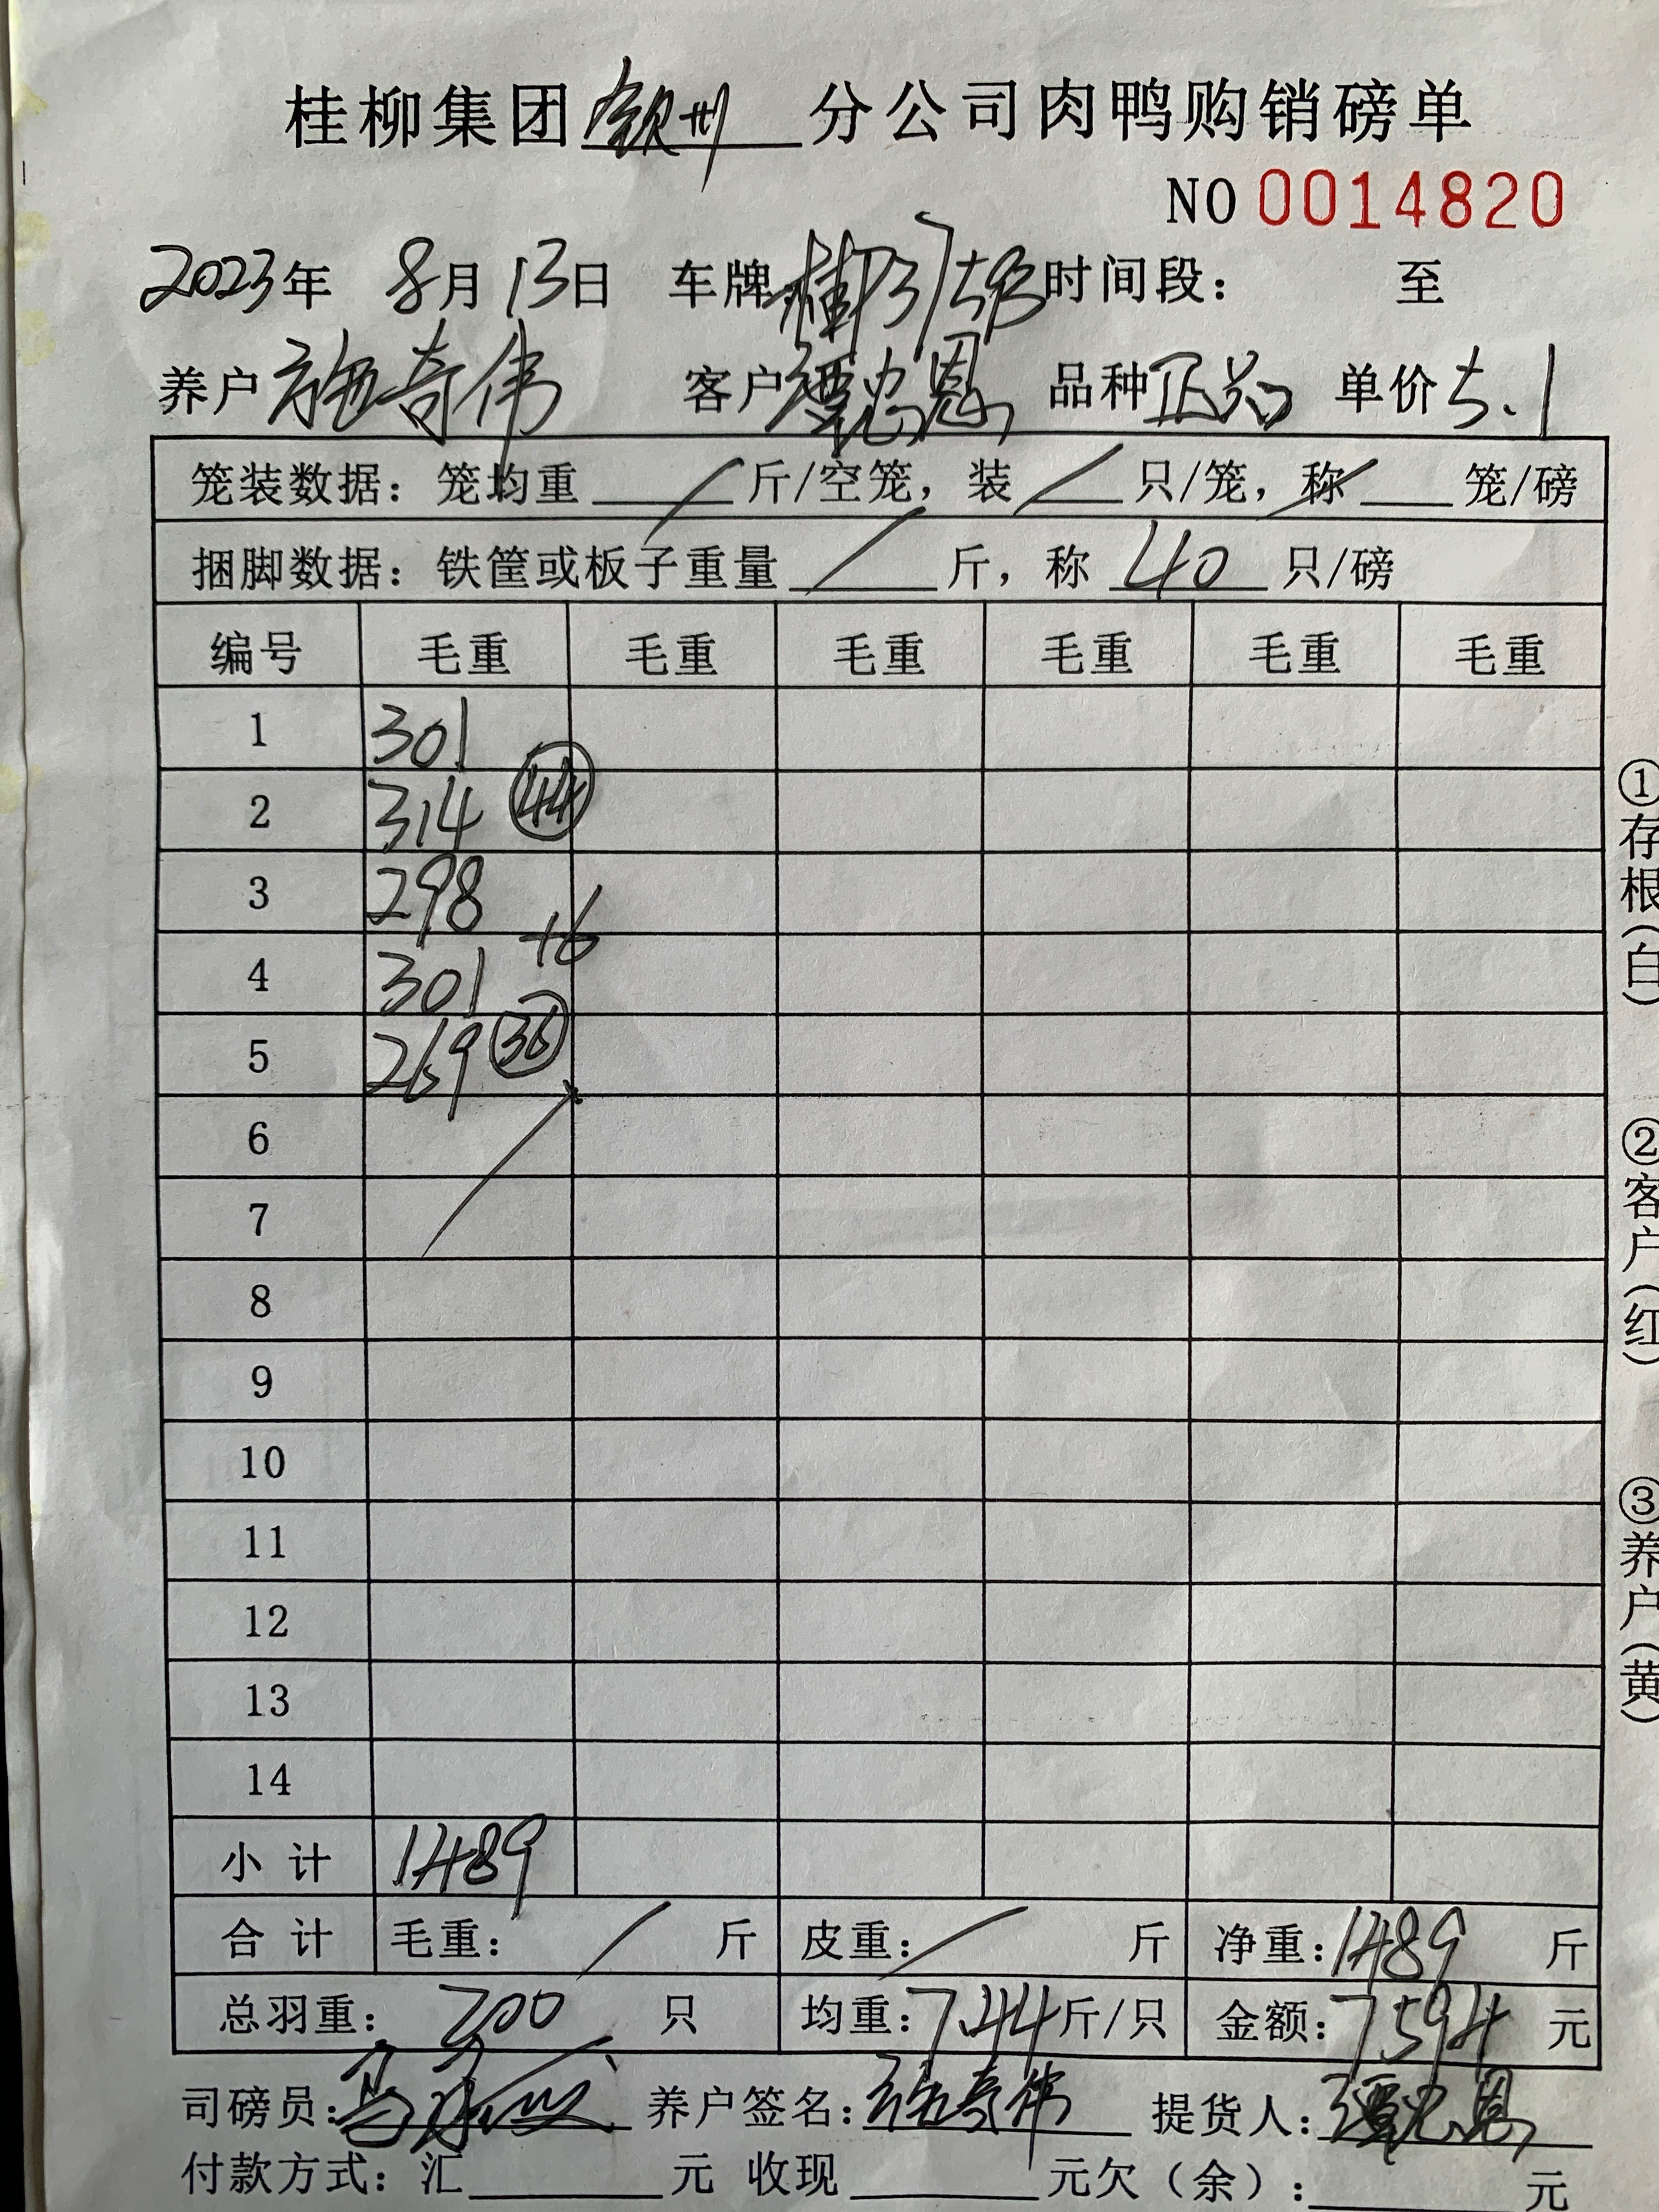 桂柳集团 钦州 分公司肉鸭购销磅单
NO 0014820
2023年 8月13日 车牌: 时间段: 至
养户 施奇伟 客户 覃忠恩 品种 正芯 单价 5.1
笼装数据: 笼均重 / 斤/空笼, 装 / 只/笼, 称 / 笼/磅
捆脚数据: 铁筐或板子重量 / 斤, 称 40 只/磅
编号 毛重 毛重 毛重 毛重 毛重 毛重
1 301
2 314 44
3 298
+6
4 301
5 269 36
6
7
8
9
10
11
12
13
14
小计 1489
合计 毛重: / 斤 皮重: / 斤 净重: 1489 斤
总羽重: 200 只 均重: 7.44 斤/只 金额: 7594 元
司磅员: 养户签名: 施奇伟 提货人: 覃忠恩
付款方式: 汇 元 收现 元欠(余): 元
①存根(白)
②客户(红)
③养户(黄)